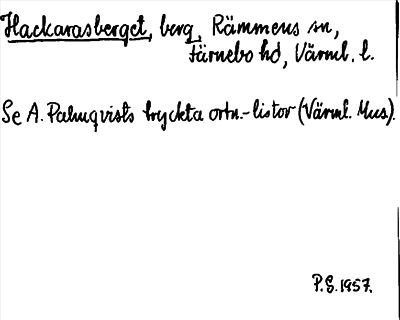 Hackarasberget, berg, Rämmens sn,
Färnebo hd, Värml. l.
Se A. Palmqvists tryckta ortn.-listor (Värml. Mus).
P.G. 1957.